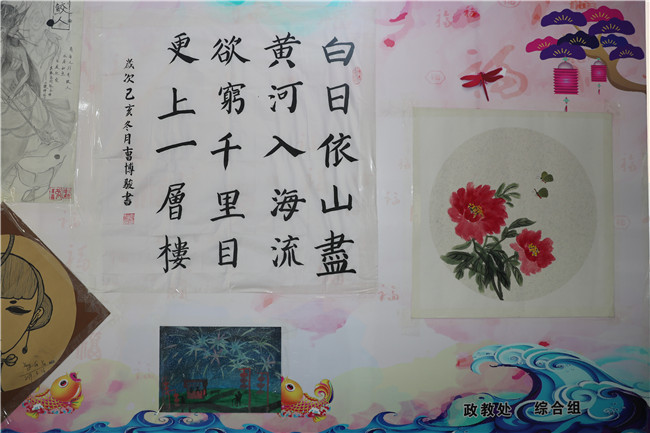 白日依山盡
黄河入海流
欲窮千里目
更上一層樓
歲次己亥冬月曹博駿書
鲛人
政教处 综合组